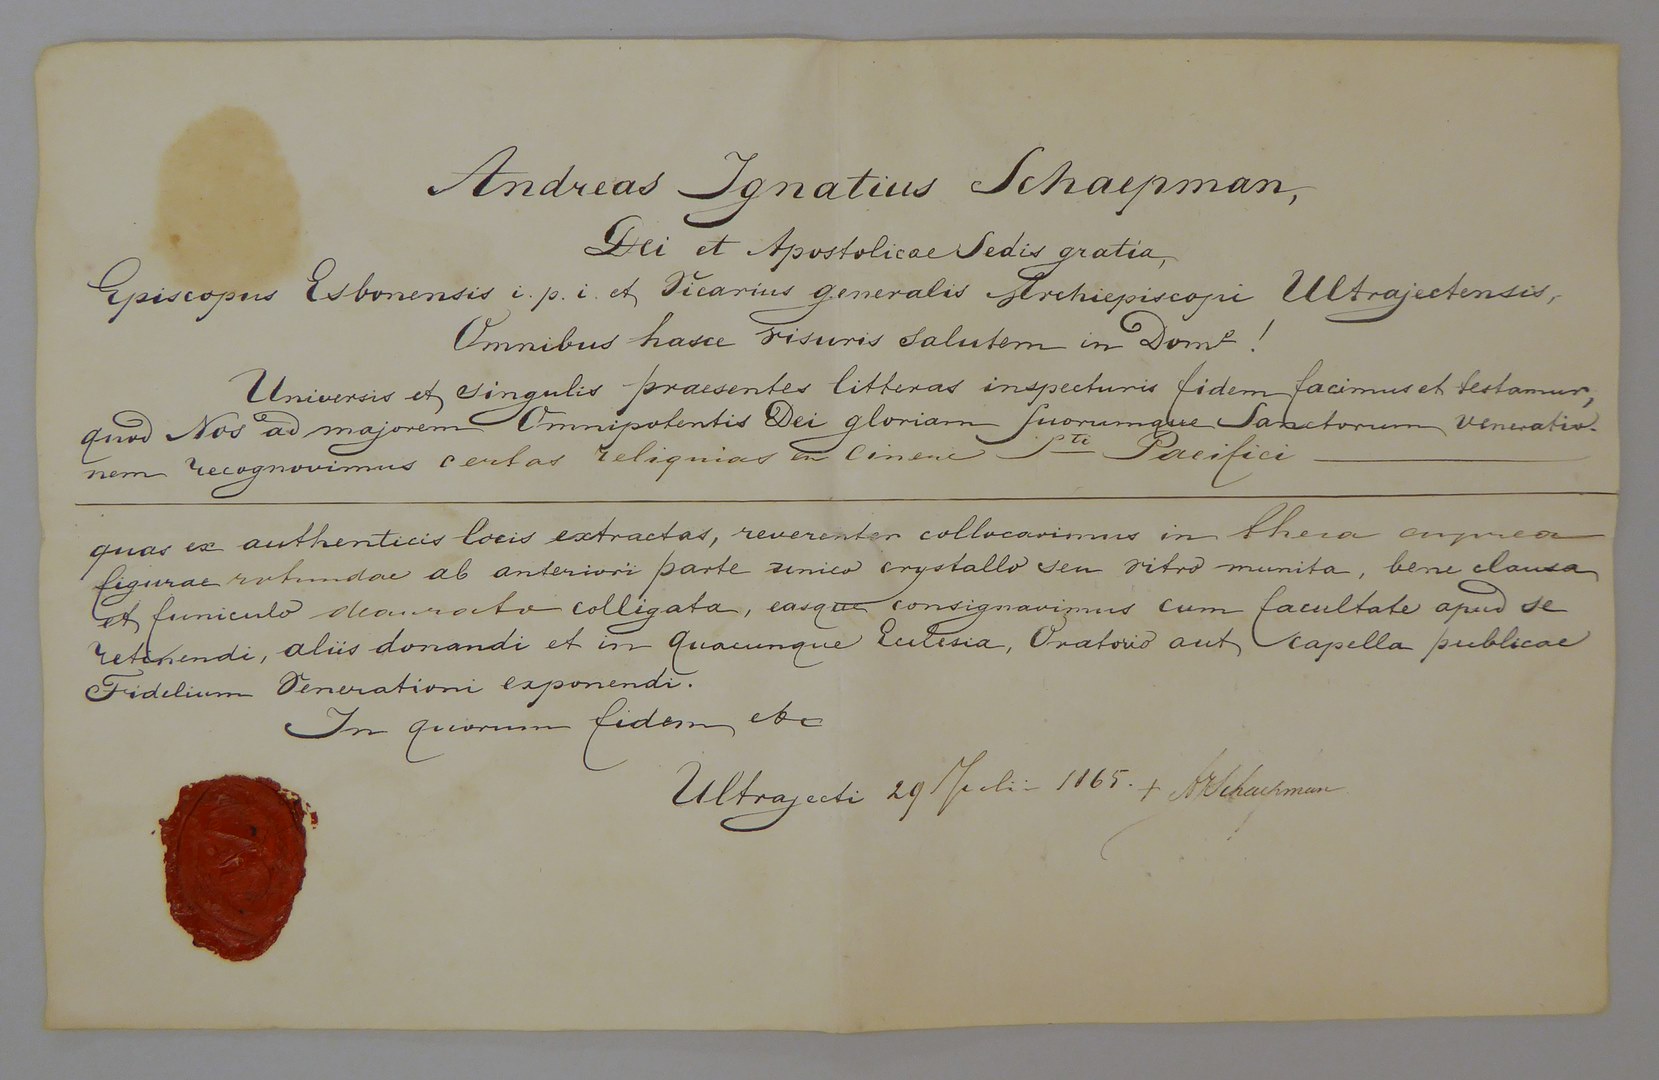 Andreas Ignatius Schaepman,
Dei et Apostolicae Sedis gratia,
Episcopus Esbonensis i. p. i. et Vicarius generalis Archiepiscopi Ultrajectensis,
Omnibus hasce visuris salutem in Domº!
Universis et singulis praesentes litteras inspecturis fidem facimus et testamur,
quod Nos ad majorem Omnipotentis Dei gloriam suorumque Sanctorum veneratio-
nem recognovimus certas reliquias ex cinere Sti Pacifici
quas ex authenticis locis extractas, reverenter collocavimus in theca cuprea
figurae rotundae ab anteriori parte unico crystallo seu vitro munita, bene clausa
et funiculo deaurato colligata, easque consignavimus cum facultate apud se
retinendi, aliis donandi et in quacunque Ecclesia, Oratorio aut capella publicae
Fidelium Venerationi exponendi.
In quorum fidem etc
Ultrajecti 29 Julii 1865. + A I Schaepman